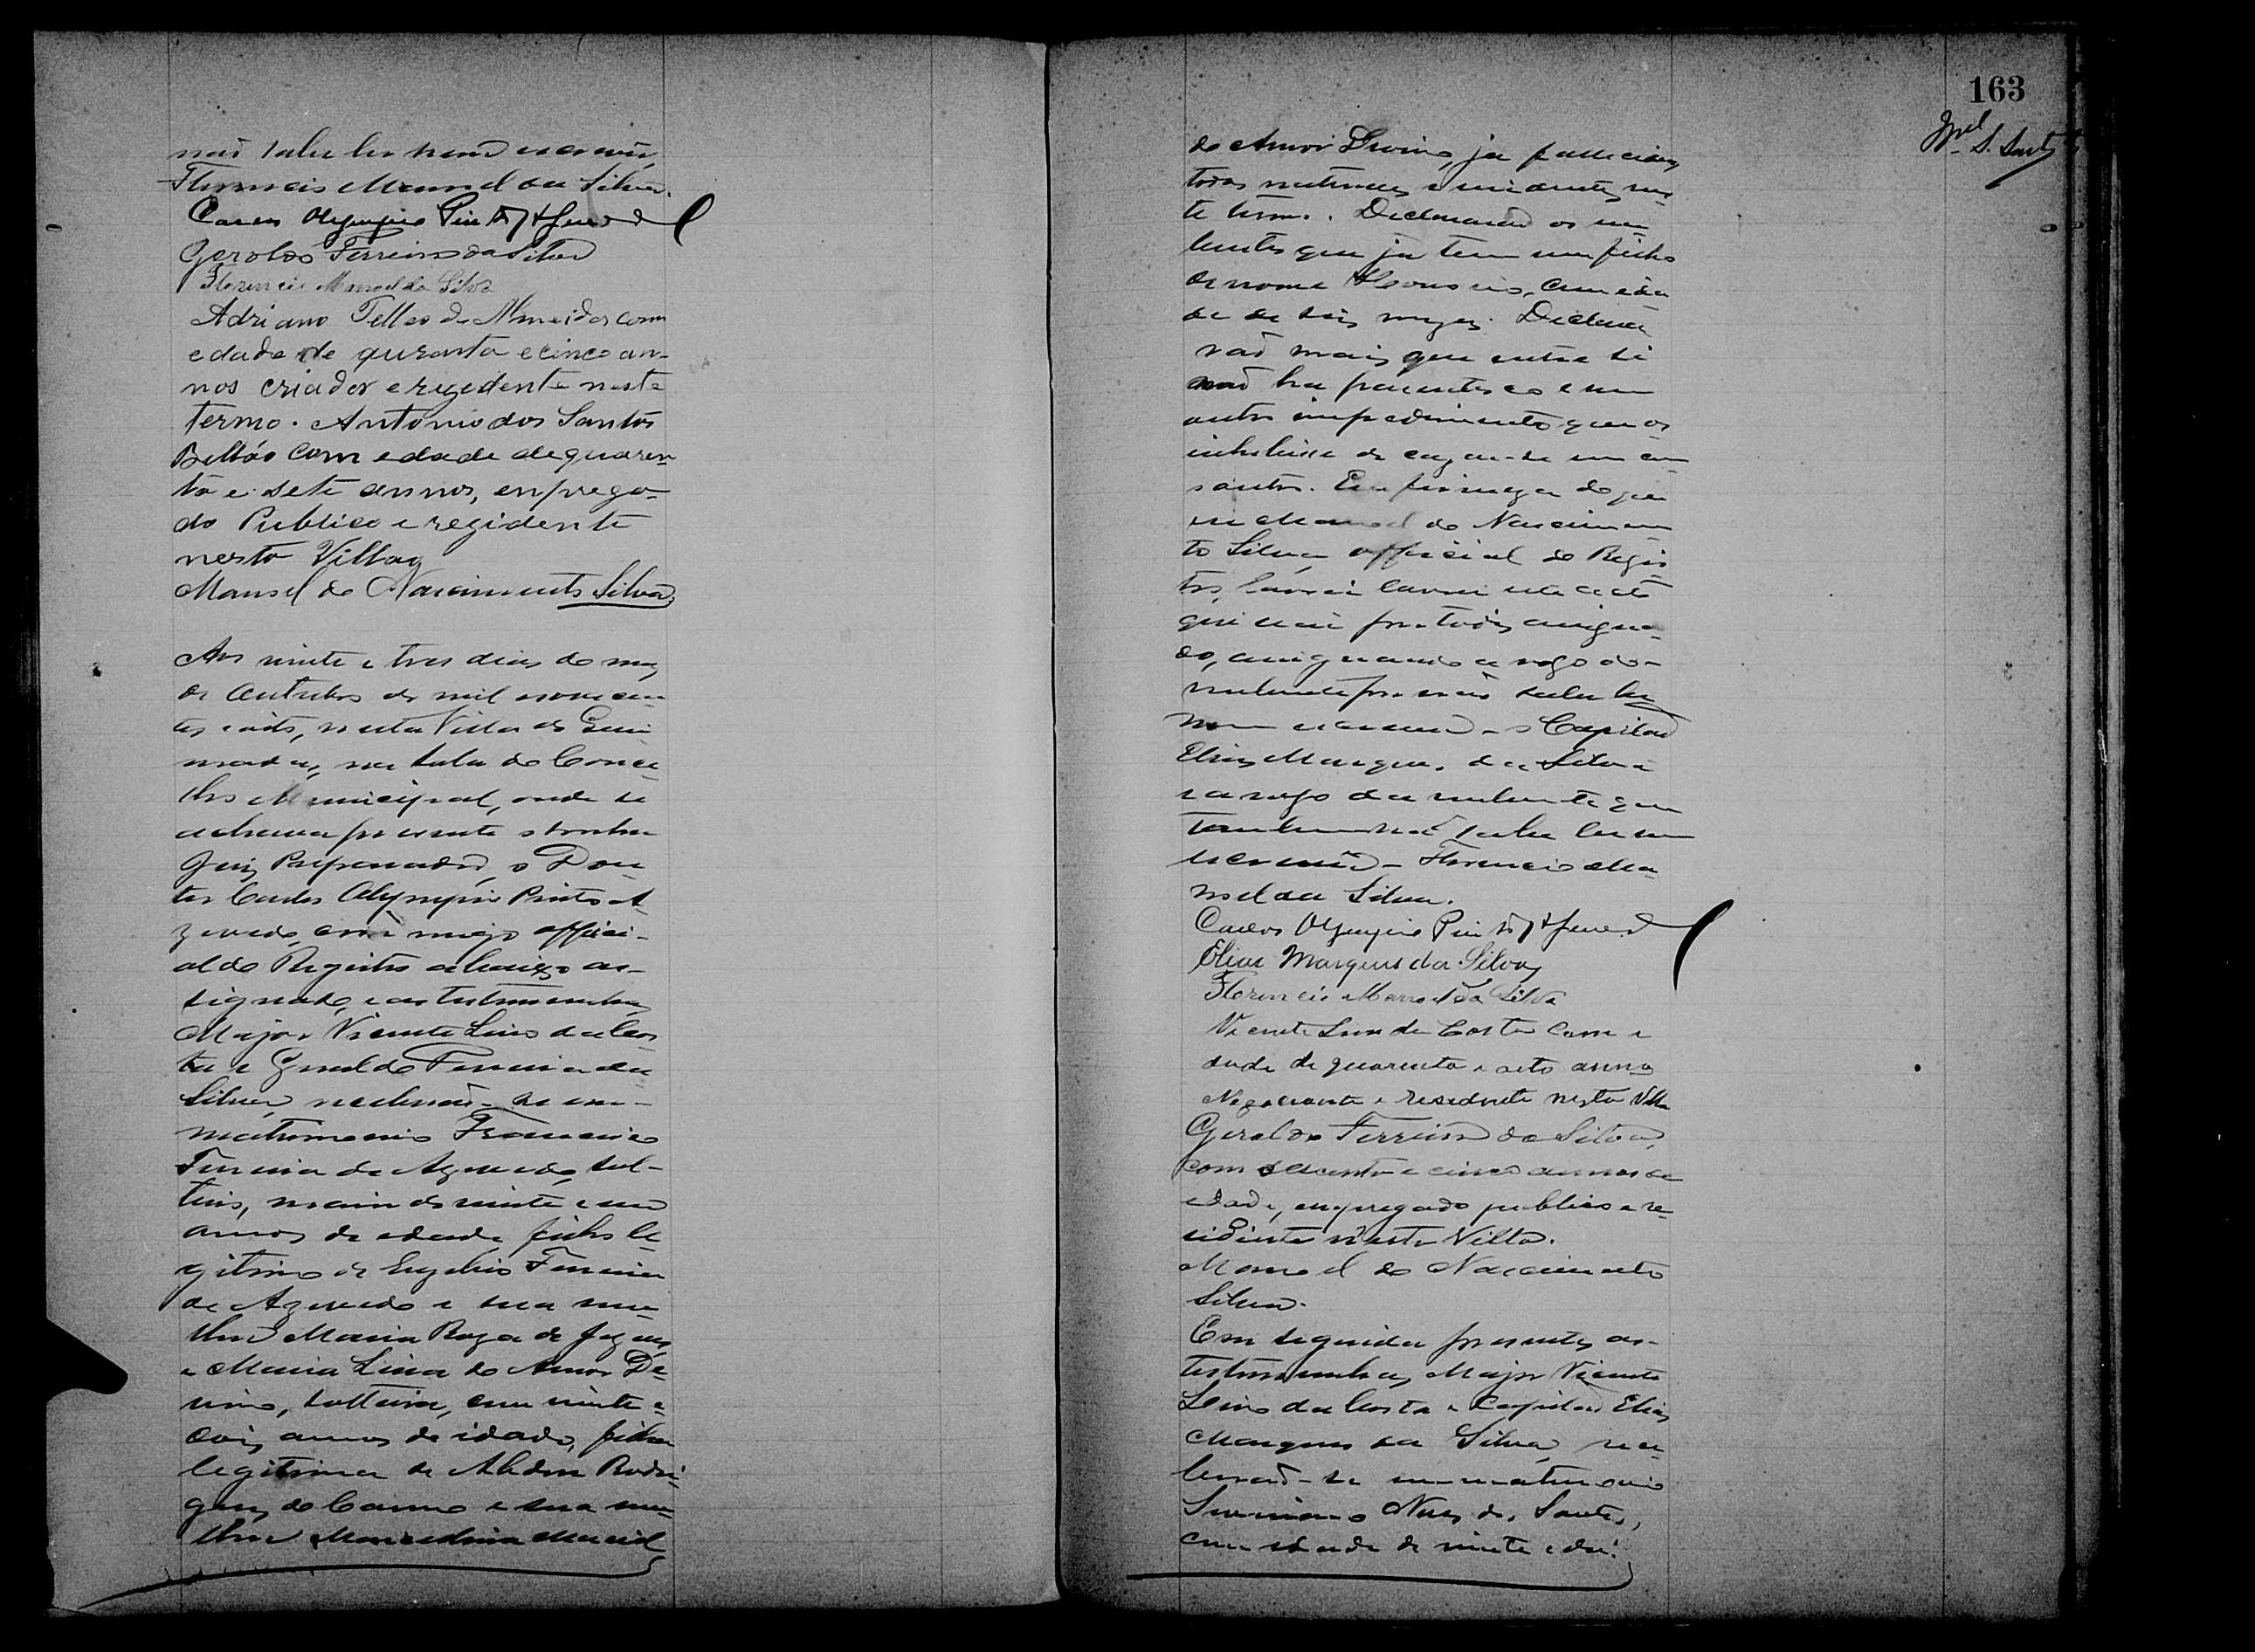 não saber ler nem escrever,
Florencio Manoel da Silva.
Carlos Olympio Pinto Azevedo
Geraldo Ferreira da Silva
Florencio Manoel da Silva
Adriano Telles de Almeida com
edade de quarenta e cinco an-
nos criador e rezidente neste
termo. Antonio dos Santos
Beltão com edade de quaren
ta e sete annos, enprega-
do Publico e rezidente
nesta Villa
Manoel do Nascimento Silva
Aos vinte e tres dias do mez
de Outubro de mil novecen-
tos e oito, nesta Villa de
na sala do Conse
lho Municipal, onde se
achava presente o
Juiz Preparador, o Dou
tor Carlos Olympio Pinto A-
zevedo, comigo offici-
al do Registro abaixo as-
signado, e as testemunhas
Major Vicente Lino da Cos
ta e Geraldo Ferreira da
Silva, receberão-se em
matrimonio Francisco
Ferreira de Azevedo, sol-
teiro, maior de vinte e um
annos de edade filho le-
gitimo de Euzebio Ferreira
de Azevedo e sua mu
lher Maria Roza de Jezus,
e Maria Lina do Amor De
vino, solteira, com vinte e
dois annos de idade, filha
legitima de Abdon Rodri
gues do Carmo e sua mu
lher Marcolina Maciel
163
do Amor Devino, ja fallecidos
todos naturaes e rezidentes nes
te termo. Declararão os nu
bentes que ja tem um filho
de nome com ida
de de seis mezes. Decla
rão mais que entre si
não ha parentesco e nem
outro impedimento que os
inhibisse de cazar-se um com
o outro. Em firmeza do que
eu Manoel do Nascimen
to Silva, official do Regis
tro, lavrei este acto
que vai por todos assigna
do, assignando a rogo do
nubente por não saber ler
nem escrever o Capitão
Elias Marques da Silva
e a rogo da nubente que
tambem não sabe ler nem
escrever Florencio Ma
noel da Silva.
Carlos Olympio Pinto Azevedo
Elias Marques da Silva
Florencio Manoel da Silva
Vicente Lino da Costa com e
dade de quarenta e oito annos
Negociante e residente nesta Villa
Geraldo Ferreira da Silva,
com secenta e cinco annos de
edade, empregado publico e re-
sidente nesta Villa.
Manoel do Nascimento
Silva.
Em seguida presentes as
testemunhas, Major Vicente
Lino da Costa e Capitão Elias
Marques da Silva, rece
berão-se em matrimonio
Nunes dos Santos,
com edade de vinte e dois